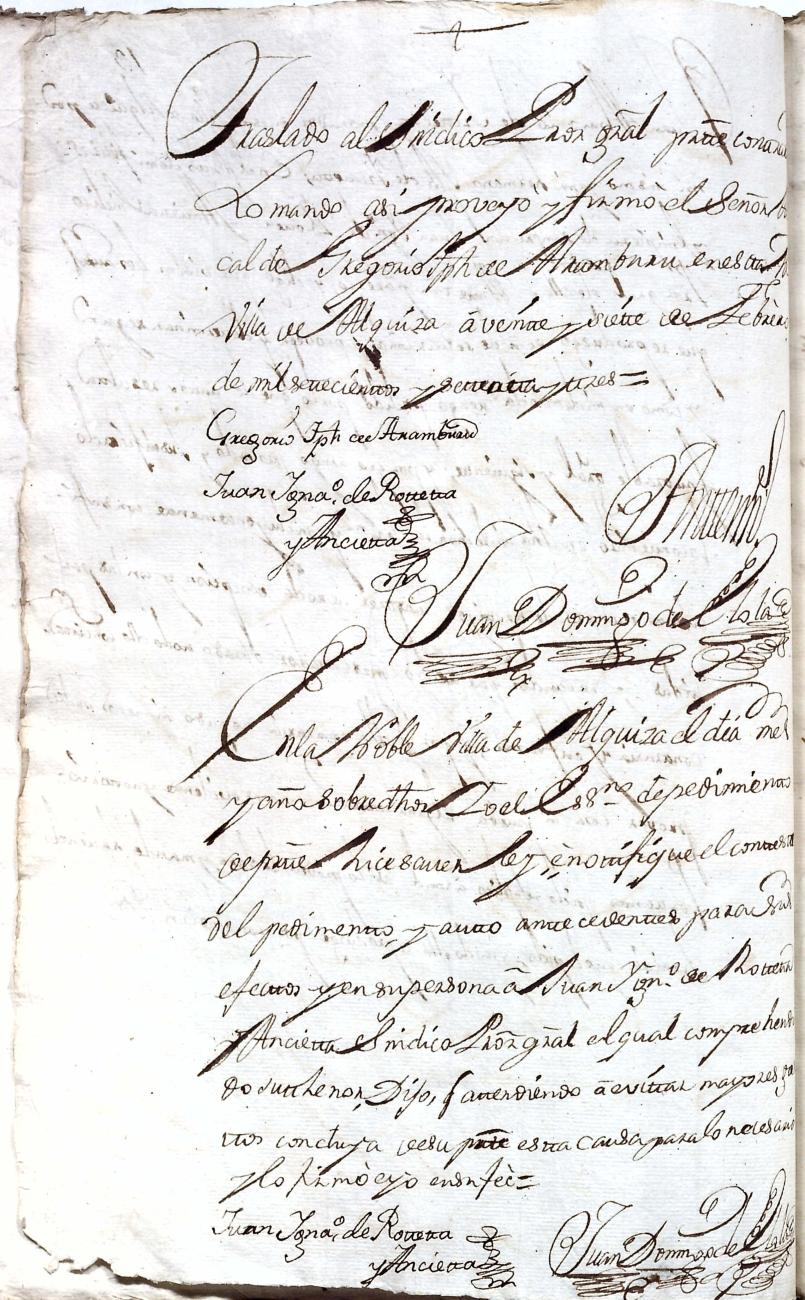 Traslado al Sindico Pror gral partte conttra
Lo mando asi proveyo y firmo el Señor Al
calde Gregorio Jph de Aramburu en estta N.
Villa de Alquiza â veintte y siette de Febrero
de mil settecienttos y settentta y ttres=
Gregorio Jph de Aramburu
Juan Ignaº. de Rottetta
y Ancietta
Antemi
Juan Domingo de
En la Noble Villa de Alquiza el dia mes
y año sobredthos Yo el Essno de pedimiento
de partte hice sauer ley, è nottifique el conttextto
del pedimentto, y autto anttecedenttes para sus
efecttos y en su persona â Juan Ygnº. de Rottetta
y Anciettta Sindico Pror gral el qual comprehendi
do su thenor, Dijo, q attendiendo â evittar mayores gas
ttos concluya de su partte estta causa para lo necesario
y lo firmò è yo en fèe=
Juan Ignaº. de Rottetta
y Anciettta
Juan Domingo de